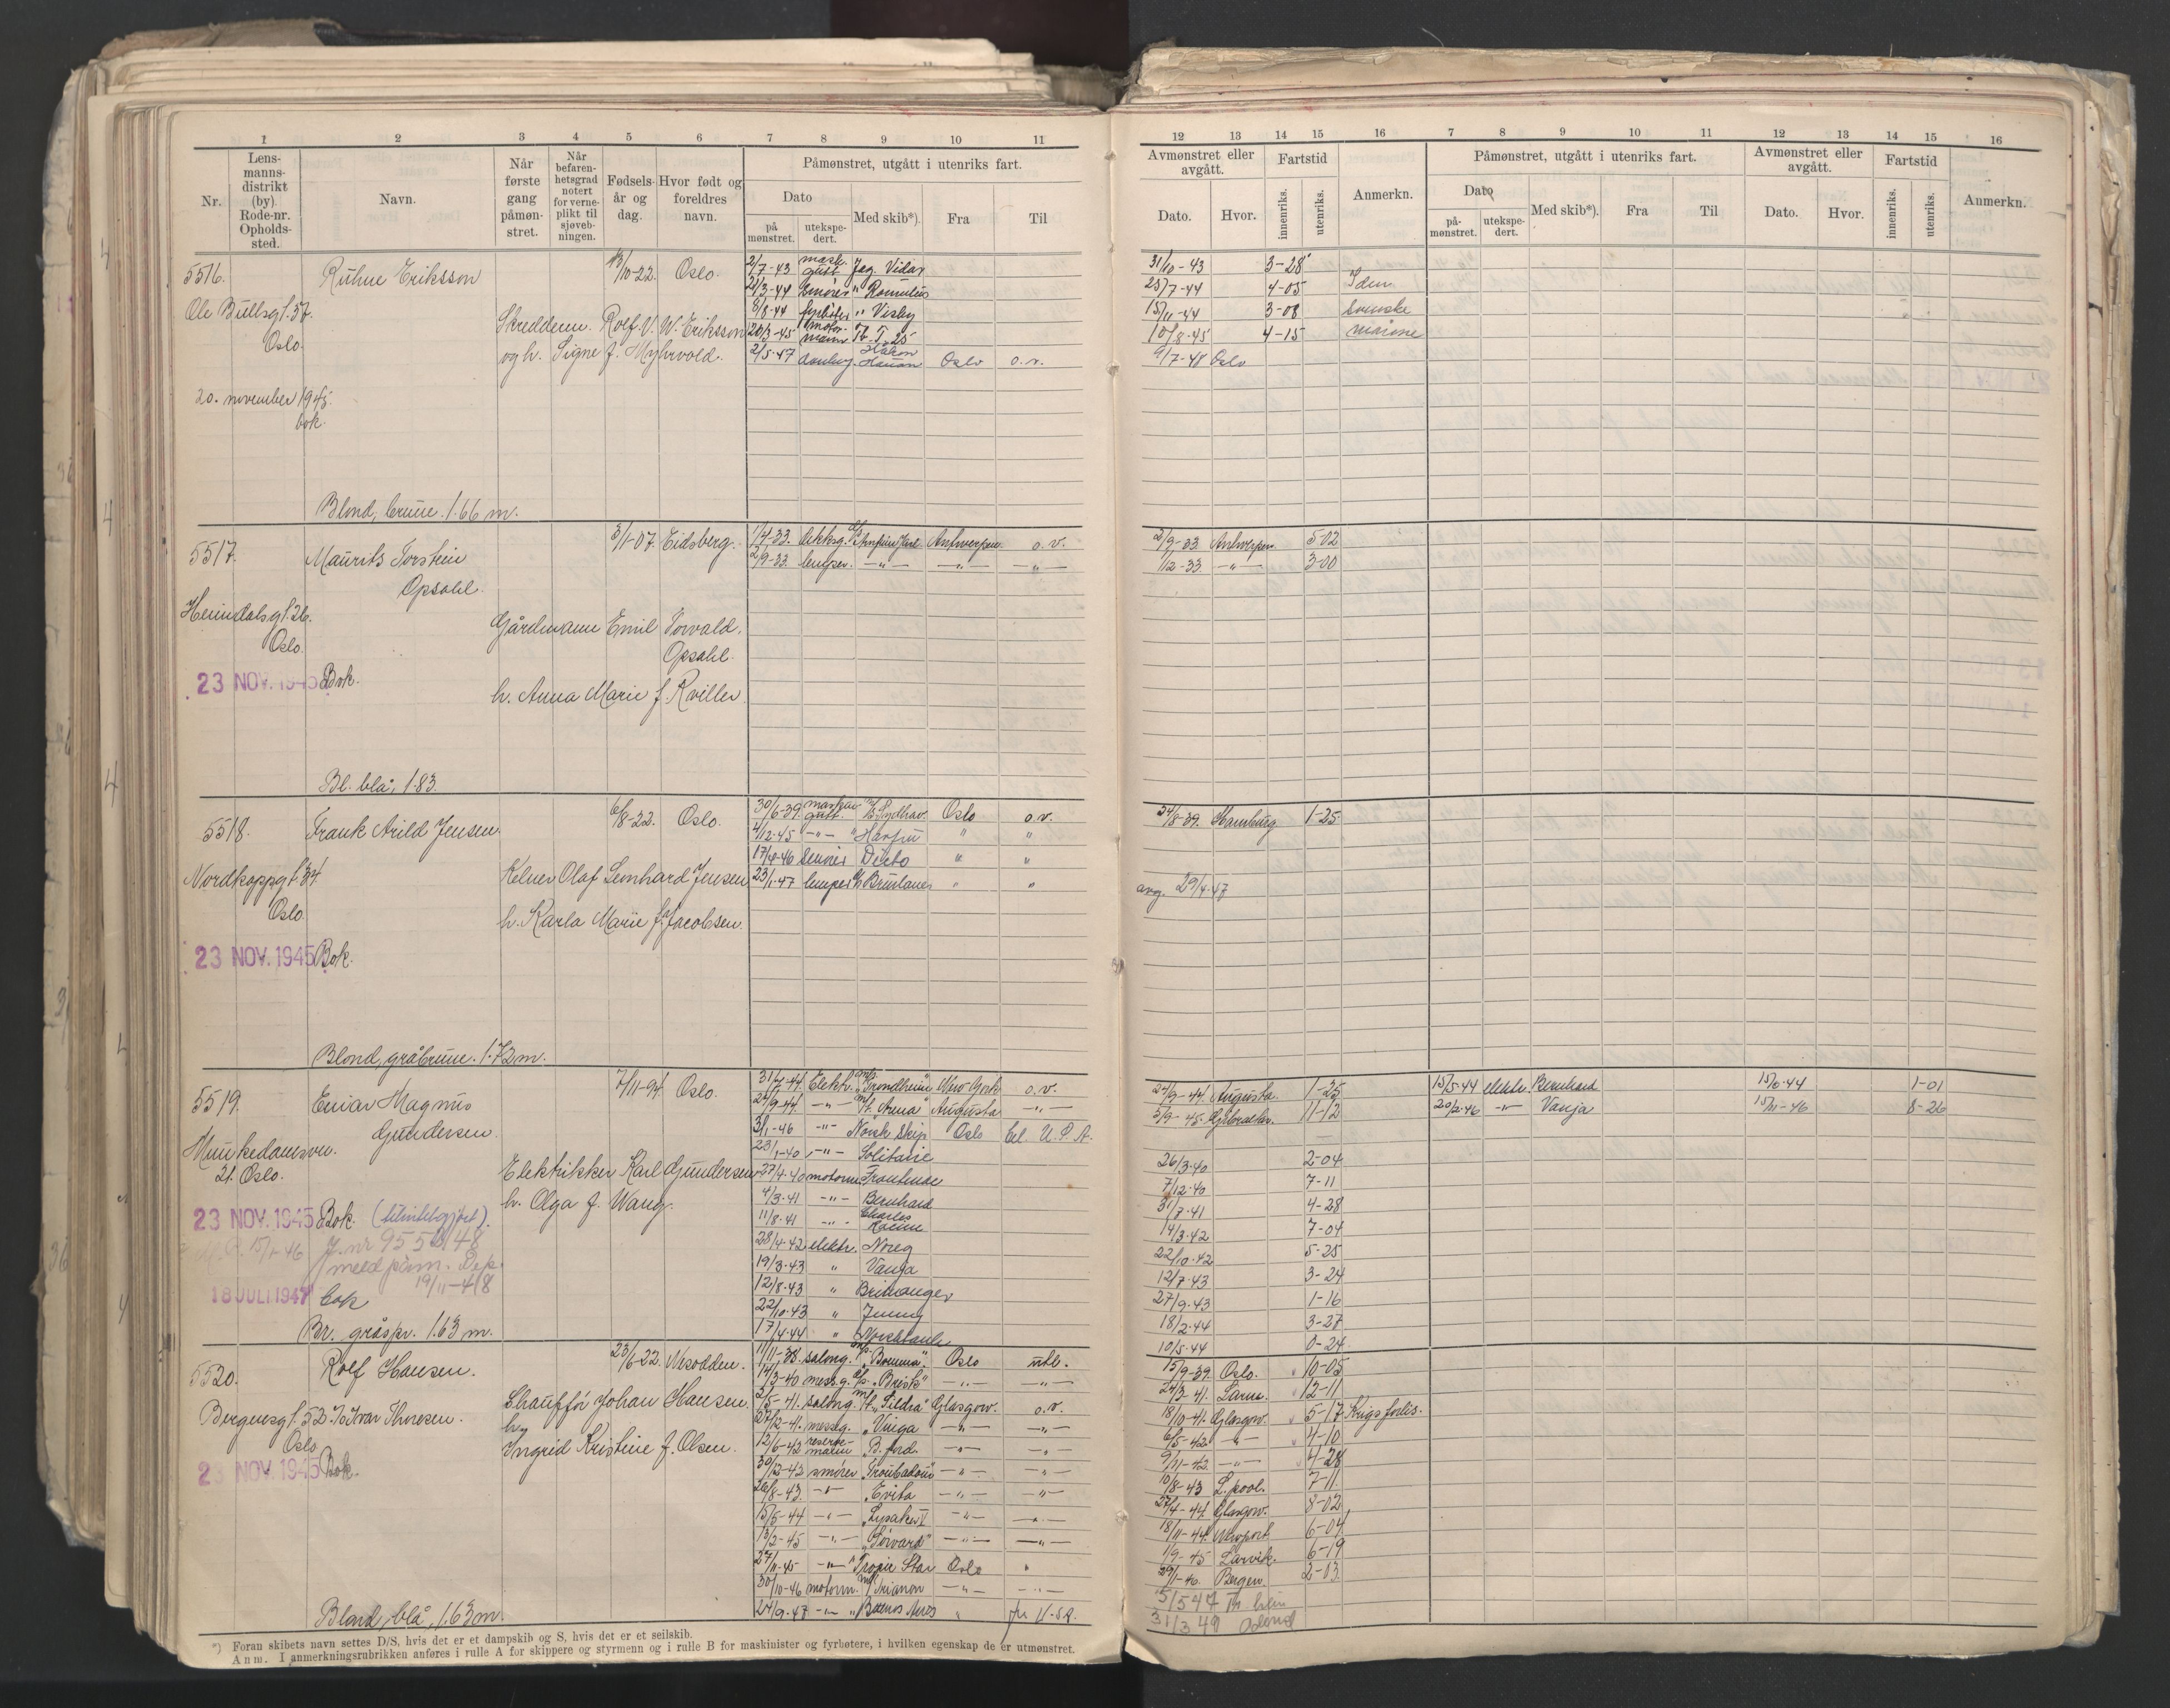 1 2 3 4 5 6 7 8 9 10 11
Nr. Lensmannsdistrikt (by). Rode-nr. Oppholdssted. Navn. Når første gang påmønstret. Når befarenhetsgrad notert for verneplikt til sjøvebningen. Fødselsår og dag. Hvor født og foreldres navn. Påmønstret, utgått i utenriks fart.
Dato på mønstret. utekspedert. Med skib*). Fra Til
12 13 14 15 16 7 8 9 10 11 12 13 14 15 16
Avmønstret eller avgått. Fartstid Anmerkn. Påmønstret, utgått i utenriks fart. Avmønstret eller avgått. Fartstid Anmerkn.
Dato. Hvor. innenriks. utenriks. Dato påmønstret. utekspedert. Med skib*). Fra Til Dato. Hvor. innenriks. utenriks.
5516. Eriksson 10-22. Oslo. 2/7-43 Jag. Vidar 31/10-43 3-28
2/3-44 smører " Romulus 25/7-44 4-05
Ole Bullsg. 57. 8/8-44 fyrbøter " Visby 15/11-44 3-08 svenske
Oslo. Skreddern. Rolf V. W. Eriksson 20/3-45 motormann T. 25 10/8-45 4-15 marine
og h. Signe f. Myhrvold. 2/5-47 Håkon Hauan Oslo o.v. 9/7-48 Oslo
20. november 1945.
bok.
Blond, brune. 1.66 m.
5517. Maurits Torstein 3/1-07. Eidsberg. 1/4-33. dekksg. Antwerpen. o.v. 2/9-33. Antwerpen. 5-02
Opsahl. 2/9-33. lemper. —"— —"— —"— /12-33. —"— 3-00
Heimdalsg. 26.
Oslo. Gårdmann Emil Torvald.
Opsahl.
23 NOV. 1945 Bok.
h. Anna Marie f. Kviller.
Bl. blå, 1.83.
5518. Frank Arild Jensen. 6/8-22. Oslo. 30/6-39. Sydhav. Oslo o.v. 24/8-39. Hamburg 1-25
4/12-45 —"— " " "
17/4-46 " "
Nordkappgt. 34. Kelner Olaf Leonhard Jensen 23/1-47 lemper " " avg. 29/4-47
Oslo. h. Karla Marie f. Jacobsen.
23 NOV. 1945 Bok.
Blond, gråbrune. 1.72 m.
5519. Einar Magnus 7/11-94. Oslo. 31/7-44. Elektr. m/s "Trondheim" New York o.v. 24/9-44. Augusta. 1-25 15/5-44 elektr. Bernhard 15/6-44 1-01
Gundersen. 24/9-44. —"— "St. Anna" Augusta —"— 5/9-45. Gibraltar. 11-12 20/2-46 —"— Vanja 15/11-46 8-26
3/1-46 —"— Norsk Skip Oslo til U.S.A.
Munkedamsvn. 23/1-40 —"— Solitaire 26/3-40 2-04
21. Oslo. Elektrikker Karl Gundersen 27/4-40 motorm. Frontenac 7/12-40 7-11
h. Olga f. Wang. 4/3-41 —"— Bernhard 31/7-41 4-28
23 NOV. 1945 Bok. (tilintetgjort). 11/8-41 —"— Charles Racine 14/3-42 7-04
15/1-46 J. nr 9556/48 28/4-42 elektr. Noreg 22/10-42 5-25
med påm. Dep. 19/11-48 19/3-43 " Vanja 12/7-43 3-24
18 JULI 1947 bok 12/8-43 " Brimanger 27/9-43 1-16
22/10-43 " Jenny 18/2-44 3-27
Br. gråspr. 1.63 m. 17/4-44 " 10/5-44 0-24
5520. Rolf Hansen. 23/6-22. Nesodden. 11/11-38. salong. m/s "Bomma". Oslo utl. 15/9-39. Oslo. 10-05
14/3-40 messg. "Brisk" —"— —"— 24/3-41. Larne. 12-11
Bergensg. 52 c/o Ivar Thoresen. Chauffór Johan Hansen. 2/5-41. salong. m/t "Lildra" Glasgow. o.v. 18/10-41. Glasgow. 5-17 Krigsforlis.
Oslo h. 27/12-41. messg. "Vinga —"— —"— 6/5-42. —"— 4-10
Ingrid Kristine f. Olsen. 12/6-42 reservemann "B. ford. —"— —"— 9/11-42. —"— 4-28
23 NOV. 1945 Bok. 30/12-42 smører "Troubadour —"— —"— 10/8-43 L.pool. 7-11
26/8-43. —"— "Evita —"— —"— 27/4-44. Glasgow. 8-02
15/5-44 —"— "Lysaker V —"— —"— 18/11-44. Newport 6-04
13/2-45 —"— "Torvard" —"— —"— 1/9-45 Larvik. 6-19
27/11-45 —"— "Tropic Star Oslo " 29/1-46. Bergen. 2-03
30/10-46 motorm. m/s Trianon —"— —"— 5/5 47
Blond, blå, 1.63 m. 24/9-47 —"— "Buenos Aires " fra U.S.A. 31/3 49
*) Foran skibets navn settes D/S, hvis det er et dampskib og S, hvis det er et seilskib.
Anm. I anmerkningsrubrikken anføres i rulle A for skippere og styrmenn og i rulle B for maskinister og fyrbøtere, i hvilken egenskap de er utmønstret.